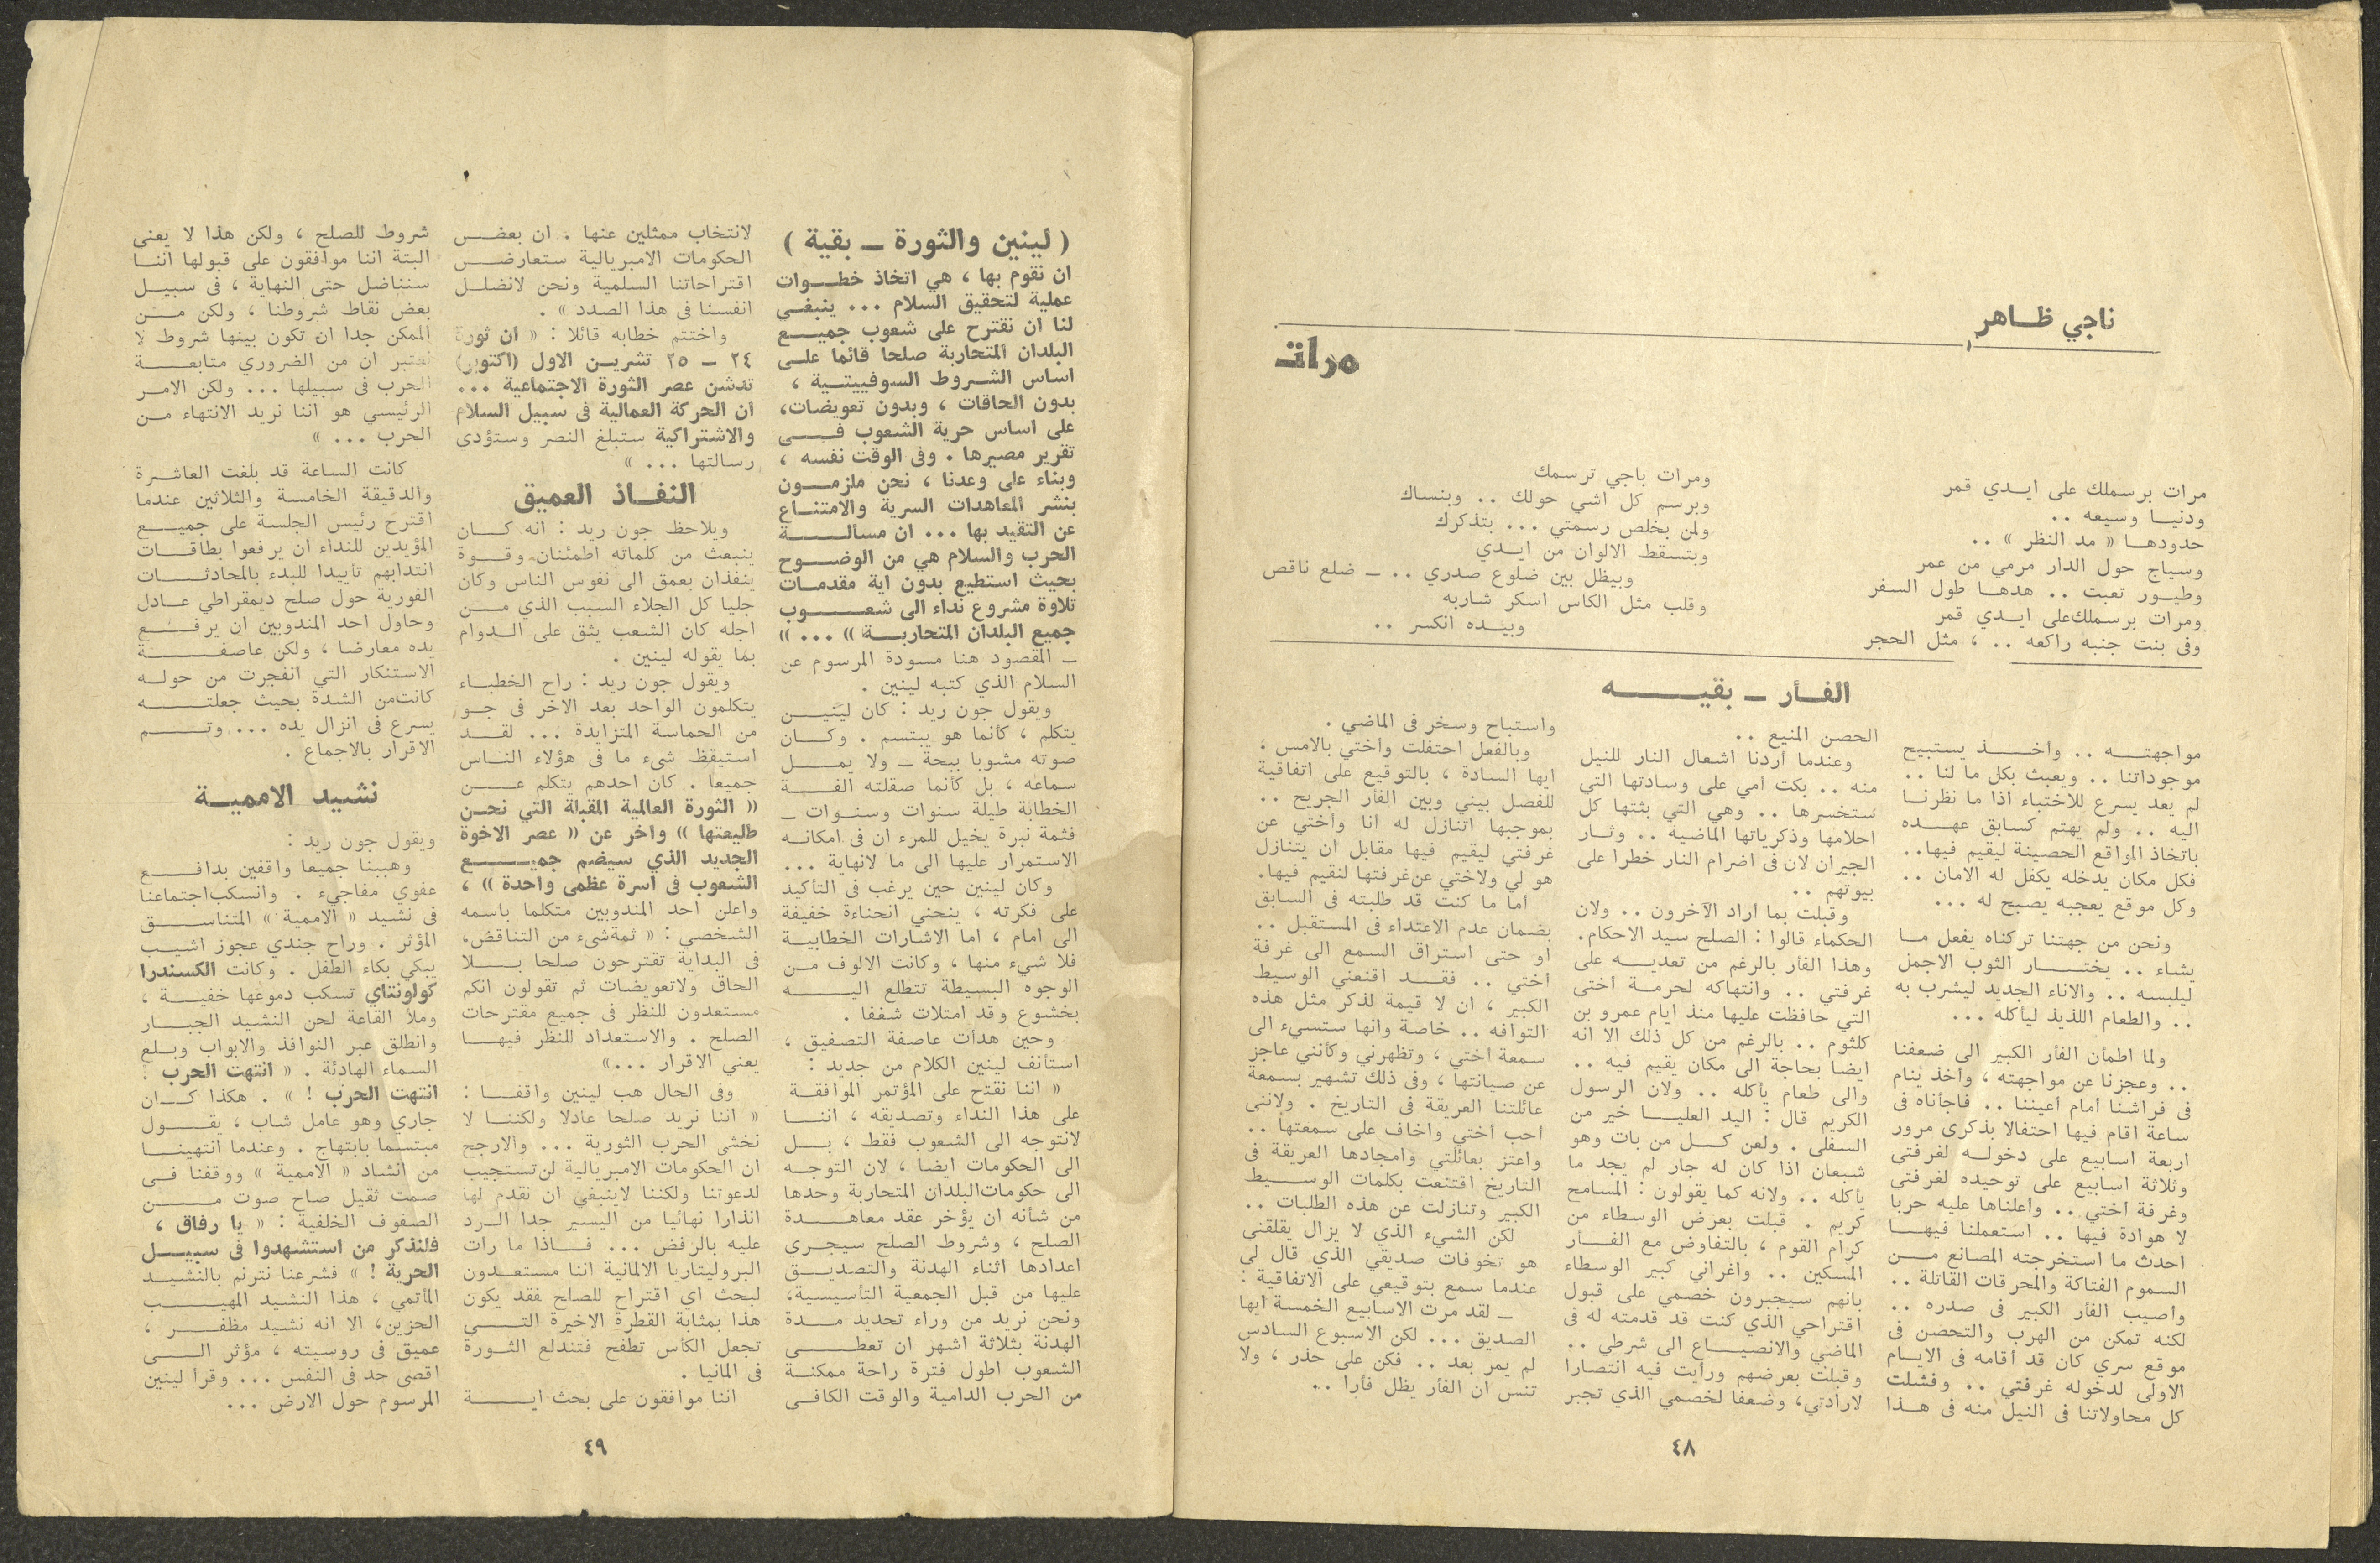 ناجي ظاهر
مرات
مرات برسملك على ايدي قمر
ودنيا وسيعه ..
حدودها « مد النظر » ..
وسياج حول الدار مرمي من عمر
وطيور تعبت .. هدها طول السفر
ومرات برسملك على ايدي قمر
وفى بنت جنبه راكعه .. ، مثل الحجر
ومرات باجي ترسمك
وبرسم كل اشي حولك .. وبنساك
ولمن بخلص رسمتي ... بتذكرك
وبتسقط الالوان من ايدي
وبيظل بين ضلوع صدري .. ـ ضلع ناقص
وقلب مثل الكاس اسكر شاربه
وبيده انكسر ..
الفأر ـ بقيه
مواجهته .. واخذ يستبيح
موجوداتنا .. ويعبث بكل ما لنا ..
لم يعد يسرع للاختباء اذا ما نظرنا
اليه .. ولم يهتم كسابق عهده
باتخاذ المواقع الحصينة ليقيم فيها..
فكل مكان يدخله يكفل له الامان ..
وكل موقع يعجبه يصبح له ...
ونحن من جهتنا تركناه يفعل ما
يشاء .. يختار الثوب الاجمل
ليلبسه .. والاناء الجديد ليشرب به
.. والطعام اللذيذ ليأكله ...
ولما اطمأن الفأر الكبير الى ضعفنا
.. وعجزنا عن مواجهته ، واخذ ينام
فى فراشنا امام اعيننا .. فاجأناه فى
ساعة اقام فيها احتفالا بذكرى مرور
اربعة اسابيع على دخوله لغرفتى
وثلاثة اسابيع على توحيده لغرفتى
وغرفة اختي .. واعلناها عليه حربا
لا هوادة فيها .. استعملنا فيها
احدث ما استخرجته المصانع من
السموم الفتاكة والمحرقات القاتلة ..
واصيب الفأر الكبير فى صدره ..
لكنه تمكن من الهرب والتحصن فى
موقع سري كان قد أقامه فى الايام
الاولى لدخوله غرفتي .. وفشلت
كل محاولاتنا فى النيل منه فى هذا
الحصن المنيع ..
وعندما اردنا اشعال النار للنيل
منه .. بكت امي على وسادتها التي
ستخسرها .. وهي التي بثتها كل
احلامها وذكرياتها الماضية .. وثار
الجيران لان فى اضرام النار خطرا على
بيوتهم ..
وقبلت بما اراد الآخرون .. ولان
الحكماء قالوا : الصلح سيد الاحكام.
وهذا الفأر بالرغم من تعديه على
غرفتي .. وانتهاكه لحرمة اختى
التي حافظت عليها منذ ايام عمرو بن
كلثوم .. بالرغم من كل ذلك الا انه
ايضا بحاجة الى مكان يقيم فيه ..
والى طعام يأكله .. ولان الرسول
الكريم قال : اليد العليا خير من
السفلى . ولعن كل من بات وهو
شبعان اذا كان له جار لم يجد ما
يأكله .. ولانه كما يقولون : المسامح
كريم . قبلت بعرض الوسطاء من
كرام القوم ، بالتفاوض مع الفأر
المسكين .. واغراني كبير الوسطاء
بانهم سيجبرون خصمي على قبول
اقتراحي الذي كنت قد قدمته له فى
الماضي والانصياع الى شرطي ..
وقبلت بعرضهم ورأيت فيه انتصارا
لارادتي، وضعفا لخصمي الذي تجبر
واستباح وسخر فى الماضي .
وبالفعل احتفلت واختي بالامس ،
ايها السادة ، بالتوقيع على اتفاقية
للفصل بيني وبين الفأر الجريح ..
بموجبها اتنازل له أنا واختي عن
غرفتي ليقيم فيها مقابل ان يتنازل
هو لي ولاختي عن غرفتها لنقيم فيها.
اما ما كنت قد طلبته فى السابق
بضمان عدم الاعتداء فى المستقبل ..
او حتى استراق السمع الى غرفة
اختي .. فقد اقنعني الوسيط
الكبير ، ان لا قيمة لذكر مثل هذه
التوافه .. خاصة وانها ستسيء الى
سمعة اختي ، وتظهرني وكأنني عاجز
عن صيانتها ، وفى ذلك تشهير بسمعة
عائلتنا العريقة فى التاريخ . ولاننى
احب اختي واخاف على سمعتها ..
واعتز بعائلتي وامجادها العريقة فى
التاريخ اقتنعت بكلمات الوسيط
الكبير وتنازلت عن هذه الطلبات ..
لكن الشيء الذي لا يزال يقلقني
هو تخوفات صديقي الذي قال لي
عندما سمع بتوقيعي على الاتفاقية :
ـ لقد مرت الاسابيع الخمسة ايها
الصديق ... لكن الاسبوع السادس
لم يمر بعد .. فكن على حذر ، ولا
تنس ان الفأر يظل فأرا ..
٤٨
( لينين والثورة ـ بقية )
ان نقوم بها ، هي اتخاذ خطوات
عملية لتحقيق السلام ... ينبغي
لنا ان نقترح على شعوب جميع
البلدان المتحاربة صلحا قائما على
اساس الشروط السوفييتية ،
بدون الحاقات ، وبدون تعويضات،
على اساس حرية الشعوب فى
تقرير مصيرها . وفى الوقت نفسه ،
وبناء على وعدنا ، نحن ملزمون
بنشر المعاهدات السرية والامتناع
عن التقيد بها ... ان مسألة
الحرب والسلام هي من الوضوح
بحيث استطيع بدون اية مقدمات
تلاوة مشروع نداء الى شعوب
جميع البلدان المتحاربة » ... »
ـ المقصود هنا مسودة المرسوم عن
السلام الذي كتبه لينين .
ويقول جون ريد : كان لينين
يتكلم ، كأنما هو يبتسم . وكان
صوته مشوبا ببحة ـ ولا يمل
سماعه ، بل كأنما صقلته الفة
الخطابة طيلة سنوات وسنوات ـ
فثمة نبرة يخيل للمرء ان فى امكانه
الاستمرار عليها الى ما لانهاية ...
وكان لينين حين يرغب فى التأكيد
على فكرته ، ينحني انحناءة خفيفة
الى امام ، اما الاشارات الخطابية
فلا شيء منها ، وكانت الالوف من
الوجوه البسيطة تتطلع اليه
بخشوع وقد امتلات شغفا .
وحين هدأت عاصفة التصفيق ،
استأنف لينين الكلام من جديد :
« اننا نقتح على المؤتمر الموافقة
على هذا النداء وتصديقه ، اننا
لانتوجه الى الشعوب فقط ، بل
الى الحكومات ايضا ، لان التوجه
الى حكومات البلدان المتحاربة وحدها
من شأنه ان يؤخر عقد معاهدة
الصلح ، وشروط الصلح سيجري
اعدادها اثناء الهدنة والتصديق
عليها من قبل الجمعية التأسيسية،
ونحن نريد من وراء تحديد مدة
الهدنة بثلاثة اشهر ان نعطي
الشعوب اطول فترة راحة ممكنة
من الحرب الدامية والوقت الكافى
لانتخاب ممثلين عنها . ان بعض
الحكومات الامبريالية ستعارض
اقتراحاتنا السلمية ونحن لانضلل
انفسنا فى هذا الصدد » .
واختتم خطابه قائلا : « ان ثورة
٢٤ ـ ٢٥ تشرين الاول (اكتوبر)
تدشن عصر الثورة الاجتماعية ...
ان الحركة العمالية فى سبيل السلام
والاشتراكية ستبلغ النصر وستؤدى
رسالتها ... »
النفاذ العميق
ويلاحظ جون ريد : انه كان
ينبعث من كلماته اطمئنان وقوة
ينفذان بعمق الى نفوس الناس وكان
جليا كل الجلاء السبب الذي من
اجله كان الشعب يثق على الدوام
بما يقوله لينين .
ويقول جون ريد : راح الخطباء
يتكلمون الواحد بعد الاخر فى جو
من الحماسة المتزايدة ... لقد
استيقظ شيء ما فى هؤلاء الناس
جميعا . كان احدهم يتكلم عن
« الثورة العالمية المقبلة التي نحن
طليعتها » واخر عن « عصر الاخوة
الجديد الذي سيضم جميع
الشعوب فى اسرة عظمى واحدة » ،
واعلن احد المندوبين متكلما باسمه
الشخصي : « ثمة شيء من التناقض،
فى البداية تقترحون صلحا بلا
الحاق ولاتعويضات ثم تقولون انكم
مستعدون للنظر فى جميع مقترحات
الصلح . والاستعداد للنظر فيها
يعني الاقرار ...»
وفى الحال هب لينين واقفا :
« اننا نريد صلحا عادلا ولكننا لا
نخشى الحرب الثورية ... والارجح
ان الحكومات الامبريالية لن تستجيب
لدعوتنا ولكننا لاينبغي ان نقدم لها
انذارا نهائيا من اليسير جدا الرد
عليه بالرفض ... فاذا ما رأت
البروليتاريا الالمانية اننا مستعدون
لبحث اي اقتراح للصلح فقد يكون
هذا بمثابة القطرة الاخيرة التي
تجعل الكأس تطفح فتندلع الثورة
فى المانيا .
اننا موافقون على بحث اية
شروط للصلح ، ولكن هذا لا يعنى
البتة اننا موافقون على قبولها اننا
سنناضل حتى النهاية ، فى سبيل
بعض نقاط شروطنا ، ولكن من
الممكن جدا ان تكون بينها شروط لا
نعتبر ان من الضروري متابعة
الحرب فى سبيلها ... ولكن الامر
الرئيسي هو اننا نريد الانتهاء من
الحرب ... »
كانت الساعة قد بلغت العاشرة
والدقيقة الخامسة والثلاثين عندما
اقترح رئيس الجلسة على جميع
المؤيدين للنداء ان يرفعوا بطاقات
انتدابهم تأييدا للبدء بالمحادثات
الفورية حول صلح ديمقراطي عادل
وحاول احد المندوبين ان يرفع
يده معارضا ، ولكن عاصفة
الاستنكار التي انفجرت من حوله
كانت من الشدة بحيث جعلته
يسرع فى انزال يده ... وتم
الاقرار بالاجماع .
نشيد الاممية
ويقول جون ريد :
وهببنا جميعا واقفين بدافع
عفوي مفاجيء . وانسكب اجتماعنا
فى نشيد « الاممية » المتناسق
المؤثر . وراح جندي عجوز اشيب
يبكي بكاء الطفل . وكانت الكسندرا
كولونتاي تسكب دموعها خفية ،
وملأ القاعة لحن النشيد الجبار
وانطلق عبر النوافذ والابواب وبلغ
السماء الهادئة . « انتهت الحرب !
انتهت الحرب ! » . هكذا كان
جاري وهو عامل شاب ، يقول
مبتسما بابتهاج . وعندما انتهينا
من انشاد « الاممية » ووقفنا فى
صمت ثقيل صاح صوت من
الصفوف الخلفية : « يا رفاق ،
فلنذكر من استشهدوا فى سبيل
الحرية ! » فشرعنا نترنم بالنشيد
المأتمي ، هذا النشيد المهيب
الحزين، الا انه نشيد مظفر ،
عميق فى روسيته ، مؤثر الى
اقصى حد فى النفس ... وقرأ لينين
المرسوم حول الارض ...
٤٩